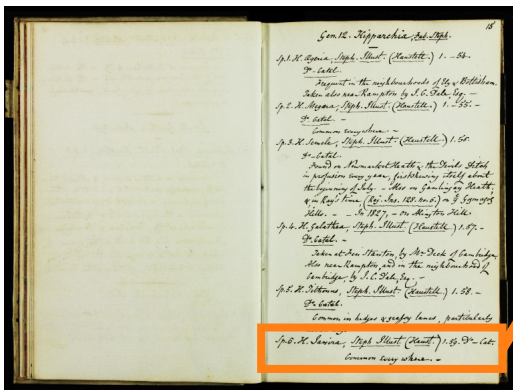 18
Gen. 12. Hipparchia, Fab. Steph.
Sp. 1. H. Ægeria, Steph. Illust. (Haustell.) 1. - 54.
Do - Catal.
Frequent in the neighbourhoods of Ely & Bottisham.
Taken also near Hampton by J. C. Dale, Esq. -
Sp. 2. H. Megæra, Steph. Illust. (Haustell.) 1. - 55. -
Do Catal. -
Common everywhere. -
Sp. 3. H. Semele, Steph. Illust. (Haustell.) 1. 56.
Do - Catal.
Found on Newmarket Heath & the Devils Ditch
in profusion every year, first shewing itself about
the beginning of July. - Also on Gamlingay Heath,
& in Ray's time, (Raj. Ins. 128. no. 6.) on Gogmagog
Hills. - - In 1827, - on Abington Hill.
Sp. 4. H. Galathea, Steph. Illust. (Haustell.) 1. 57. -
Do Catal. -
Taken at Stanton, by Mr. Deck of Cambridge,
Also near Hampton, and in the neighbourhood of
Cambridge, by J. C. Dale, Esq. -
Sp. 5. H. Tithonus, Steph. Illust. (Haustell.) 1. 58. -
Do - Catal.
Common in hedges & grassy lanes, particularly
Sp. 6. H. Janira, Steph Illust (Haust.) 1. 59. Do - Cat.
Common every where. -